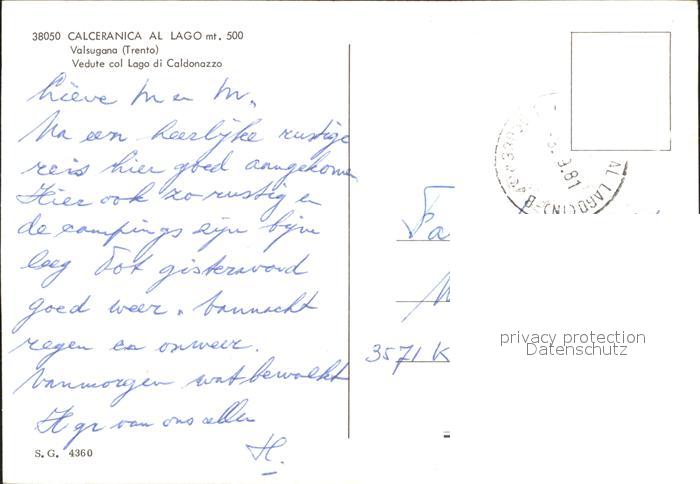 38050 CALCERANICA AL LAGO mt. 500
Valsugana (Trento)
Vedute col Lago di Caldonazzo
Lieve M en M.
Na een heerlijke rustige
reis hier goed aangekomen
Hier ook zo rustig en
de campings zijn bijna
leeg Tot gisteravond
goed weer. Vannacht
regen en onweer.
Vanmorgen wat bewolkt
H gr van ons allen
H.
S. G. 4360
9.81
AL LAGO (TN)
Fa
3571 K
privacy protection
Datenschutz